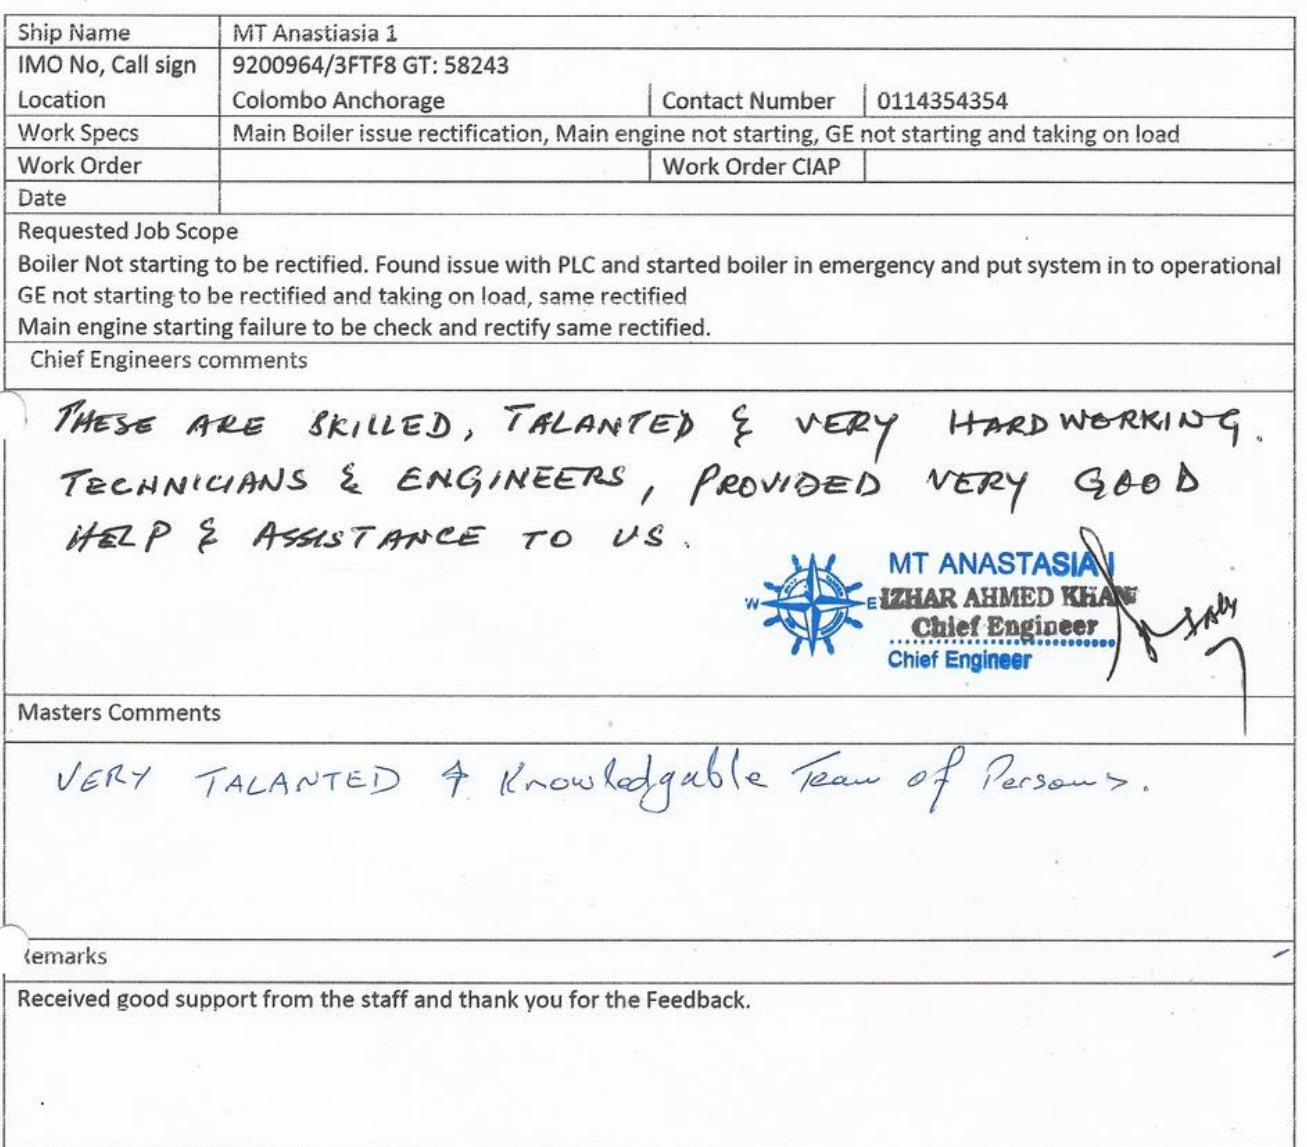 Ship Name MT Anastiasia 1
IMO No, Call sign 9200964/3FTF8 GT: 58243
Location Colombo Anchorage Contact Number 0114354354
Work Specs Main Boiler issue rectification, Main engine not starting, GE not starting and taking on load
Work Order Work Order CIAP
Date
Requested Job Scope
Boiler Not starting to be rectified. Found issue with PLC and started boiler in emergency and put system in to operational
GE not starting to be rectified and taking on load, same rectified
Main engine starting failure to be check and rectify same rectified.
Chief Engineers comments
THESE ARE SKILLED, TALANTED & VERY HARDWORKING.
TECHNICIANS & ENGINEERS, PROVIDED VERY GOOD
HELP & ASSISTANCE TO US.
MT ANASTASIA I
W E IZHAR AHMED KHAN
Chief Engineer
Chief Engineer
Masters Comments
VERY TALANTED & Knowledgable Team of Persons.
emarks
Received good support from the staff and thank you for the Feedback.